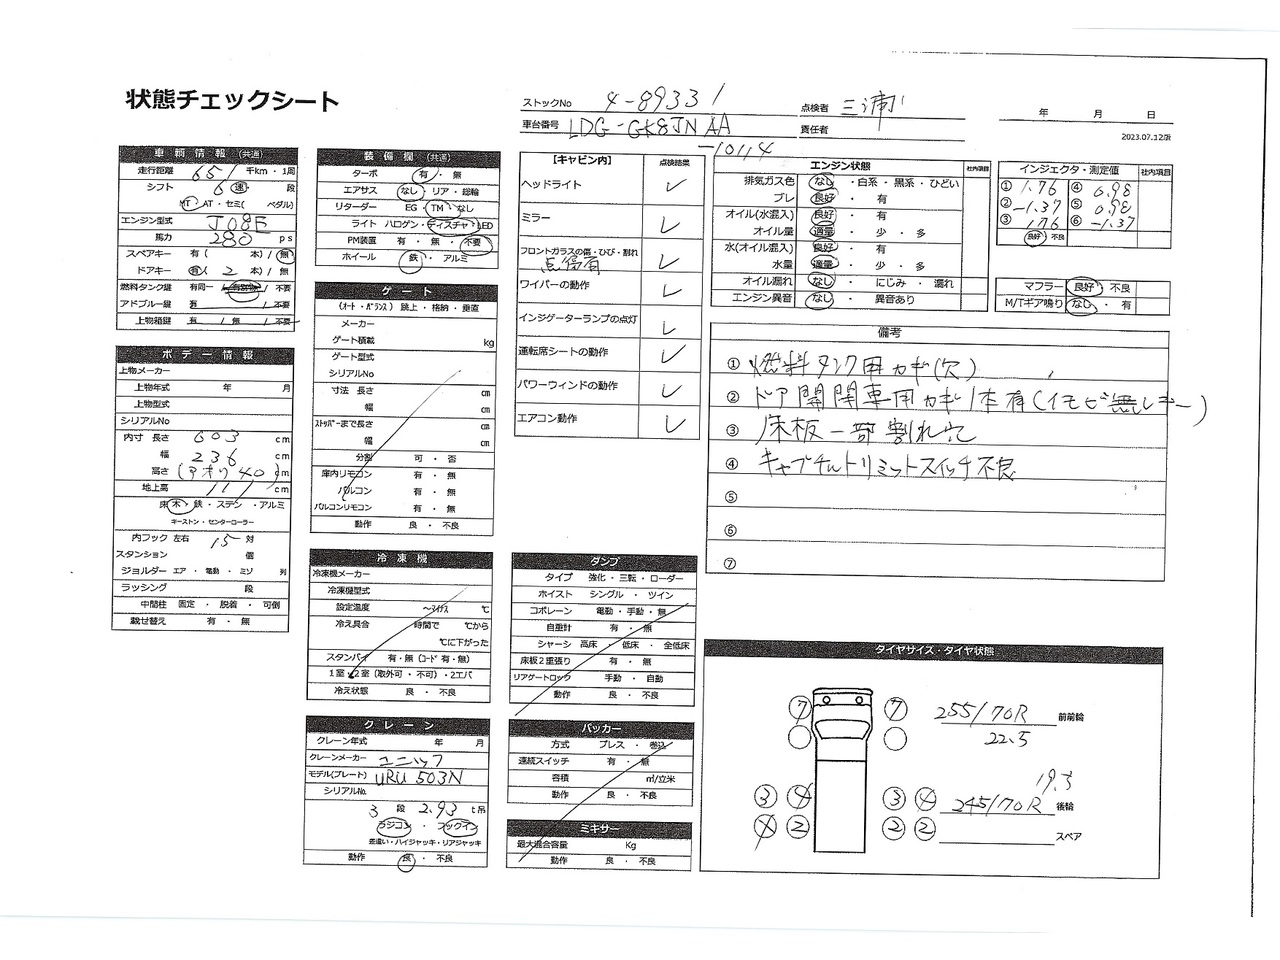 状態チェックシート
ストックNo 4-89331
車台番号 LDG-GK8JNAA
-10114
点検者 三浦
責任者
年 月 日
2023.07.12版
車輌情報 (共通)
走行距離 651 千km・1周
シフト 6 速・ 段
MT・AT・セミ( ペダル)
エンジン型式 J08E
馬力 280 ps
スペアキー 有( 本) / 無
ドアキー 有( 2 本) / 無
燃料タンク鍵 有同一 / 有別物 / 不要
アドブルー鍵 有 / 不要
上物箱鍵 有 / 無 / 不要
ボデー情報
上物メーカー
上物年式 年 月
上物型式
シリアルNo
内寸 長さ 603 cm
幅 236 cm
高さ (アオリ40) cm
地上高 111 cm
床 木・鉄・ステン・アルミ
キーストン・センターローラー
内フック 左右 15 対
スタンション 個
ジョルダー エア・電動・ミゾ 列
ラッシング 段
中間柱 固定・脱着・可倒
載せ替え 有・無
装備欄 (共通)
ターボ 有・無
エアサス なし・リア・総輪
リターダー EG・TM・なし
ライト ハロゲン・ディスチャ・LED
PM装置 有・無・不要
ホイール 鉄・アルミ
ゲート
(オート・バランス) 跳上・格納・垂直
メーカー
ゲート積載 kg
ゲート型式
シリアルNo
寸法 長さ cm
幅 cm
ストッパーまで長さ cm
幅 cm
分割 可・否
庫内リモコン 有・無
バルコン 有・無
バルコンリモコン 有・無
動作 良・不良
冷凍機
冷凍機メーカー
冷凍機型式
設定温度 ～マイナス ℃
冷え具合 時間で ℃から
℃に下がった
スタンバイ 有・無 (コード 有・無)
1室・2室 (取外可・不可)・2エバ
冷え状態 良・不良
クレーン
クレーン年式 年 月
クレーンメーカー ユニック
モデル(プレート) URU 503N
シリアルNo.
3 段 2.93 t吊
ラジコン・フックイン
差違い・ハイジャッキ・リアジャッキ
動作 良・不良
【キャビン内】 点検結果
ヘッドライト ✓
ミラー ✓
フロントガラスの傷・ひび・割れ ✓
点傷有
ワイパーの動作 ✓
インジゲーターランプの点灯 ✓
運転席シートの動作 ✓
パワーウィンドの動作 ✓
エアコン動作 ✓
ダンプ
タイプ 強化・三転・ローダー
ホイスト シングル・ツイン
コボレーン 電動・手動・無
自重計 有・無
シャーシ 高床・低床・全低床
床板2重張り 有・無
リアゲートロック 手動・自動
動作 良・不良
パッカー
方式 プレス・巻込
連続スイッチ 有・無
容積 ㎥/立米
動作 良・不良
ミキサー
最大混合容量 Kg
動作 良・不良
エンジン状態 社内項目
排気ガス色 なし・白系・黒系・ひどい
ブレ 良好・有
オイル(水混入) 良好・有
オイル量 適量・少・多
水(オイル混入) 良好・有
水量 適量・少・多
オイル漏れ なし・にじみ・漏れ
エンジン異音 なし・異音あり
インジェクタ・測定値 社内項目
① 1.76 ④ 0.98
② -1.37 ⑤ 0.98
③ 1.76 ⑥ -1.37
良好・不良
マフラー 良好・不良
M/Tギア鳴り なし・有
備考
① 燃料タンク用カギ(欠)
② ドア開閉車用カギ1本有(イモビ無しキー)
③ 床板一部割れ穴
④ キャブチルトリミットスイッチ不良
⑤
⑥
⑦
タイヤサイズ・タイヤ状態
7 7 255/70R 前前輪
22.5
19.5
3 4 3 4 245/70R 後輪
2 2 2 スペア